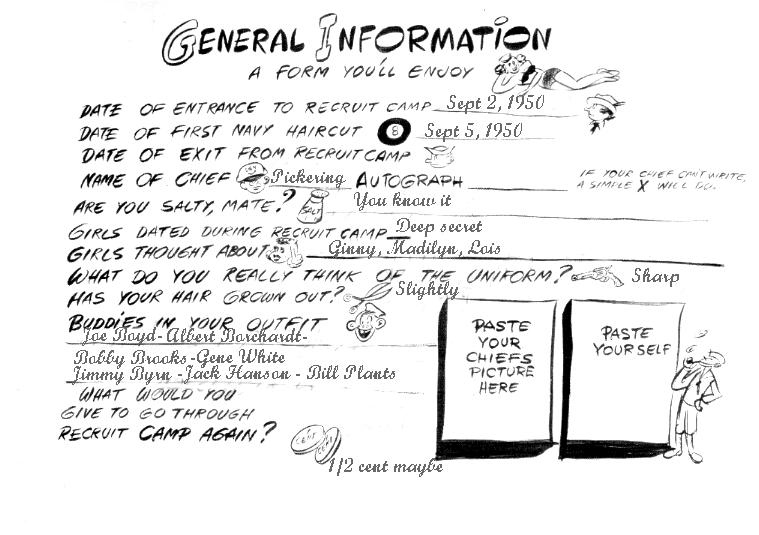 GENERAL INFORMATION
A FORM YOU'LL ENJOY
DATE OF ENTRANCE TO RECRUIT CAMP Sept 2, 1950
DATE OF FIRST NAVY HAIRCUT 8 Sept 5, 1950
DATE OF EXIT FROM RECRUIT CAMP
NAME OF CHIEF Pickering AUTOGRAPH IF YOUR CHIEF CAN'T WRITE, A SIMPLE X WILL DO.
ARE YOU SALTY, MATE? SALT You know it
GIRLS DATED DURING RECRUIT CAMP Deep secret
GIRLS THOUGHT ABOUT Ginny, Madilyn, Lois
WHAT DO YOU REALLY THINK OF THE UNIFORM? Sharp
HAS YOUR HAIR GROWN OUT? Slightly
BUDDIES IN YOUR OUTFIT
Joe Boyd- Albert Borchardt-
Bobby Brooks-Gene White
Jimmy Byrn -Jack Hanson - Bill Plants
WHAT WOULD YOU
GIVE TO GO THROUGH
RECRUIT CAMP AGAIN?
1/2 cent maybe
PASTE
YOUR
CHIEFS
PICTURE
HERE
PASTE
YOURSELF